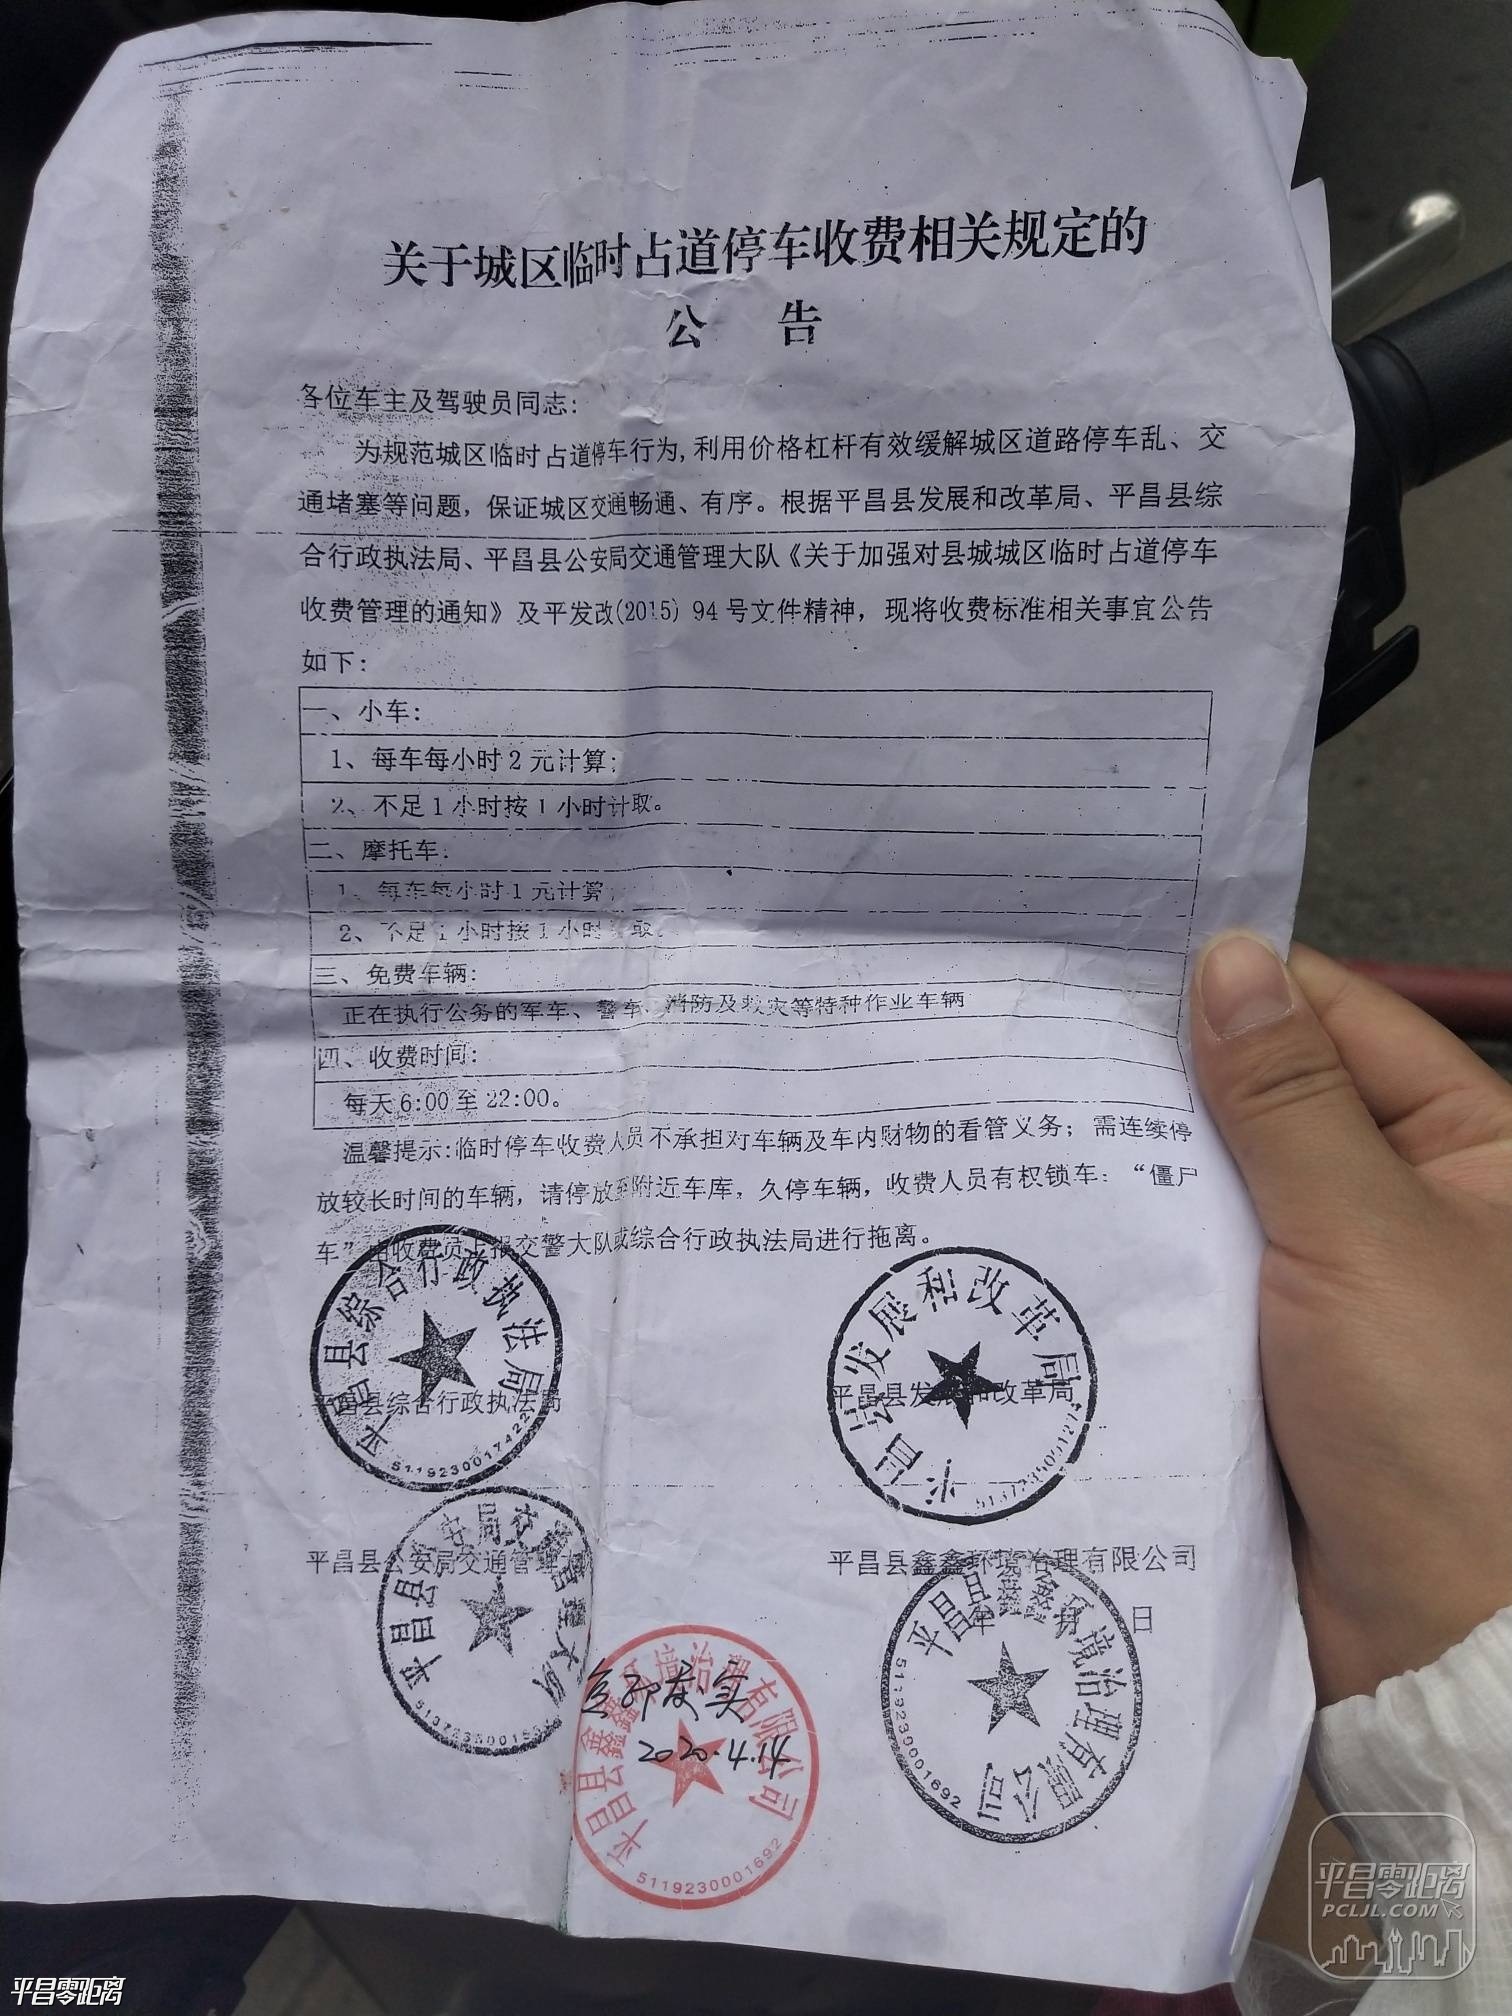 关于城区临时占道停车收费相关规定的
公 告
各位车主及驾驶员同志:
为规范城区临时占道停车行为,利用价格杠杆有效缓解城区道路停车乱、交
通堵塞等问题，保证城区交通畅通、有序。根据平昌县发展和改革局、平昌县综
合行政执法局、平昌县公安局交通管理大队《关于加强对县城城区临时占道停车
收费管理的通知》及平发改(2015) 94 号文件精神，现将收费标准相关事宜公告
如下:
一、小车:
1、每车每小时 2 元计算;
2、不足 1 小时按 1 小时计取。
二、摩托车:
1、每车每小时 1 元计算;
2、不足 1 小时按 1 小时计取。
三、免费车辆:
正在执行公务的军车、警车、消防及救灾等特种作业车辆
四、收费时间:
每天 6:00 至 22:00。
温馨提示:临时停车收费人员不承担对车辆及车内财物的看管义务；需连续停
放较长时间的车辆，请停放到附近车库。久停车辆，收费人员有权锁车；“僵尸
车”由收费员上报交警大队或综合行政执法局进行拖离。
平昌县综合行政执法局
5119230017422
平昌县综合行政执法局
平昌县发展和改革局
平昌县发展和改革局
平昌县公安局交通管理大队
平昌县公安局交通管理大
平昌县鑫鑫环境治理有限公司
年 月 日
平昌县鑫鑫环境治理有限公司
5119230001692
平昌县鑫鑫环境治理有限公司
5119230001692
复印属实
2020.4.14
平昌零距离
PCLJL.COM
平昌零距离